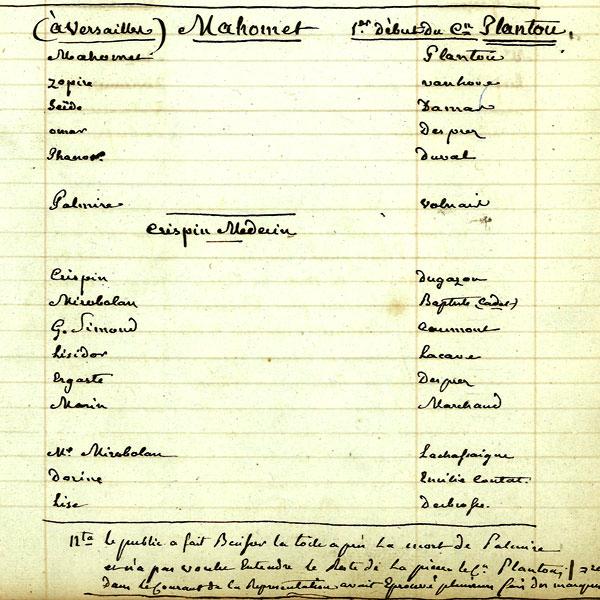 (à Versailles) Mahomet 1er début du Cn Plantou,
Mahomet Plantou
Zopire vanhove
Seïde Damas
omar Desprez
Phanor Duval
Palmire volnais
Crispin Médecin
Crispin Dugazon
Mirobolan Baptiste (Cadet)
G. Simond Caumont
Lisidor Lacave
Ergaste Desprez
Marin Marchand
Me Mirobolan Lachassaigne
Dorine Emilie Contat.
Lise Desbrosses.
Nta le public a fait Baisser la toile après La mort de Palmire
et n'a pas voulu Entendre le Reste de La pièce le Cn Plantou
dans le Courant de la Représentation avait Eprouvé plusieurs fois des marques